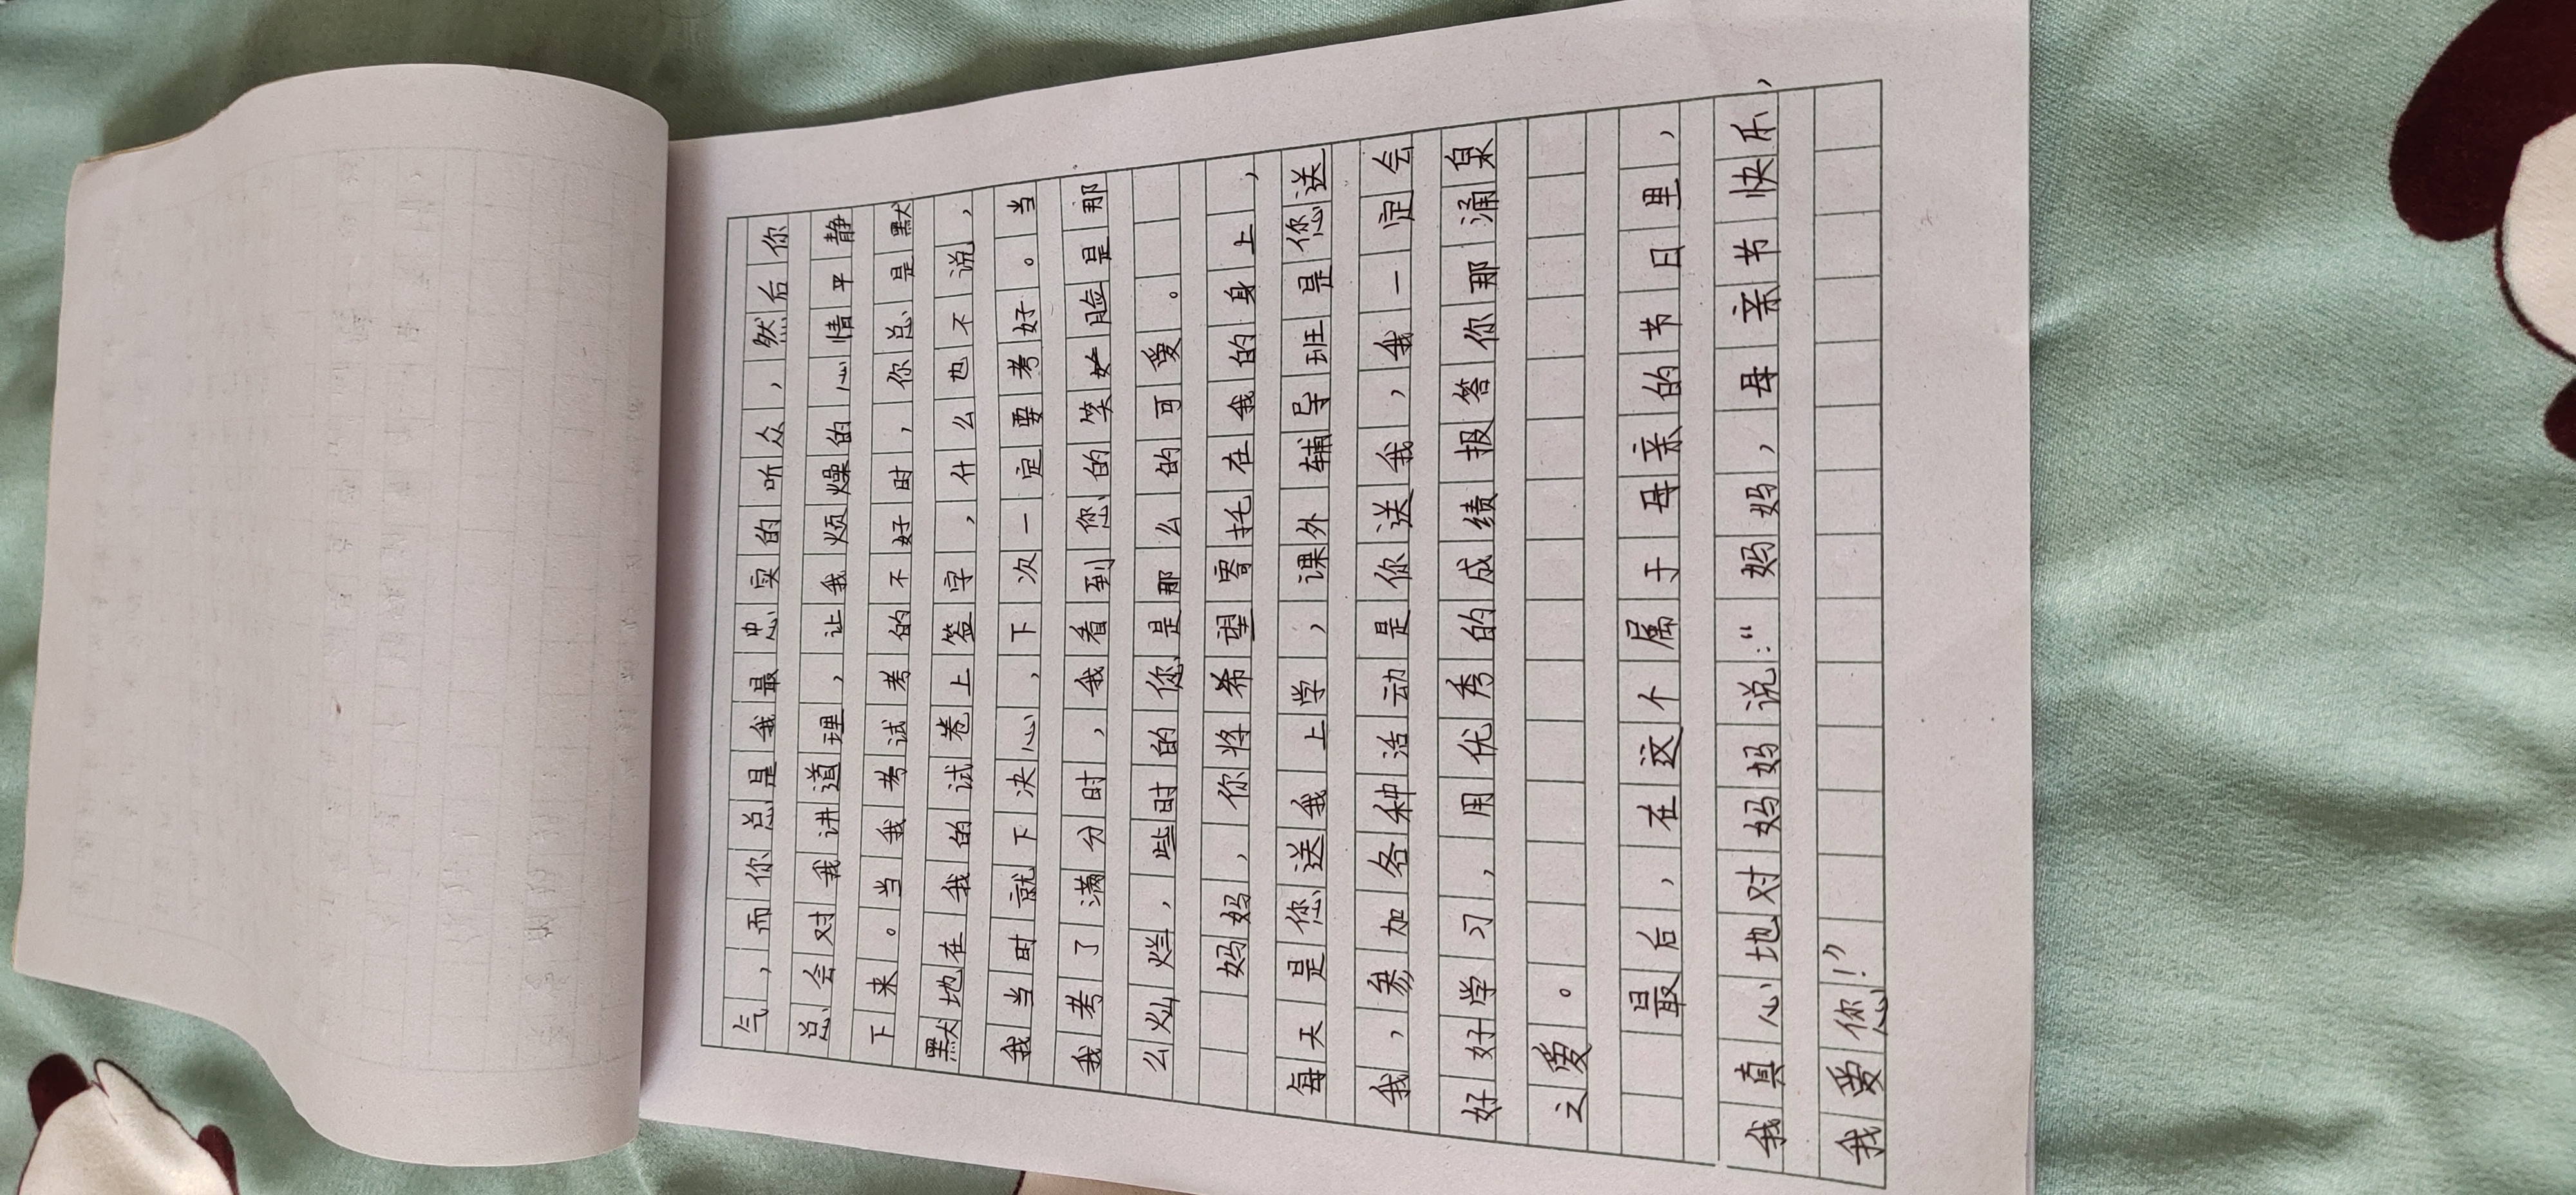 气，而你总是我最忠实的听众，然后你
总会对我讲道理，让我烦燥的心情平静
下来。当我考试考的不好时，你总是默
默地在我的试卷上签字，什么也不说，
我当时就下决心，下次一定要考好。当
我考了满分时，我看到您的笑脸是那
么灿烂，些时的您是那么的可爱。
妈妈，你将希望寄托在我的身上，
每天是您送我上学，课外辅导班是您送
我，参加各种活动是你送我，我一定会
好好学习，用优秀的成绩报答你那涌泉
之爱。
最后，在这个属于母亲的节日里，
我真心地对妈妈说：“妈妈，母亲节快乐，
我爱您！”